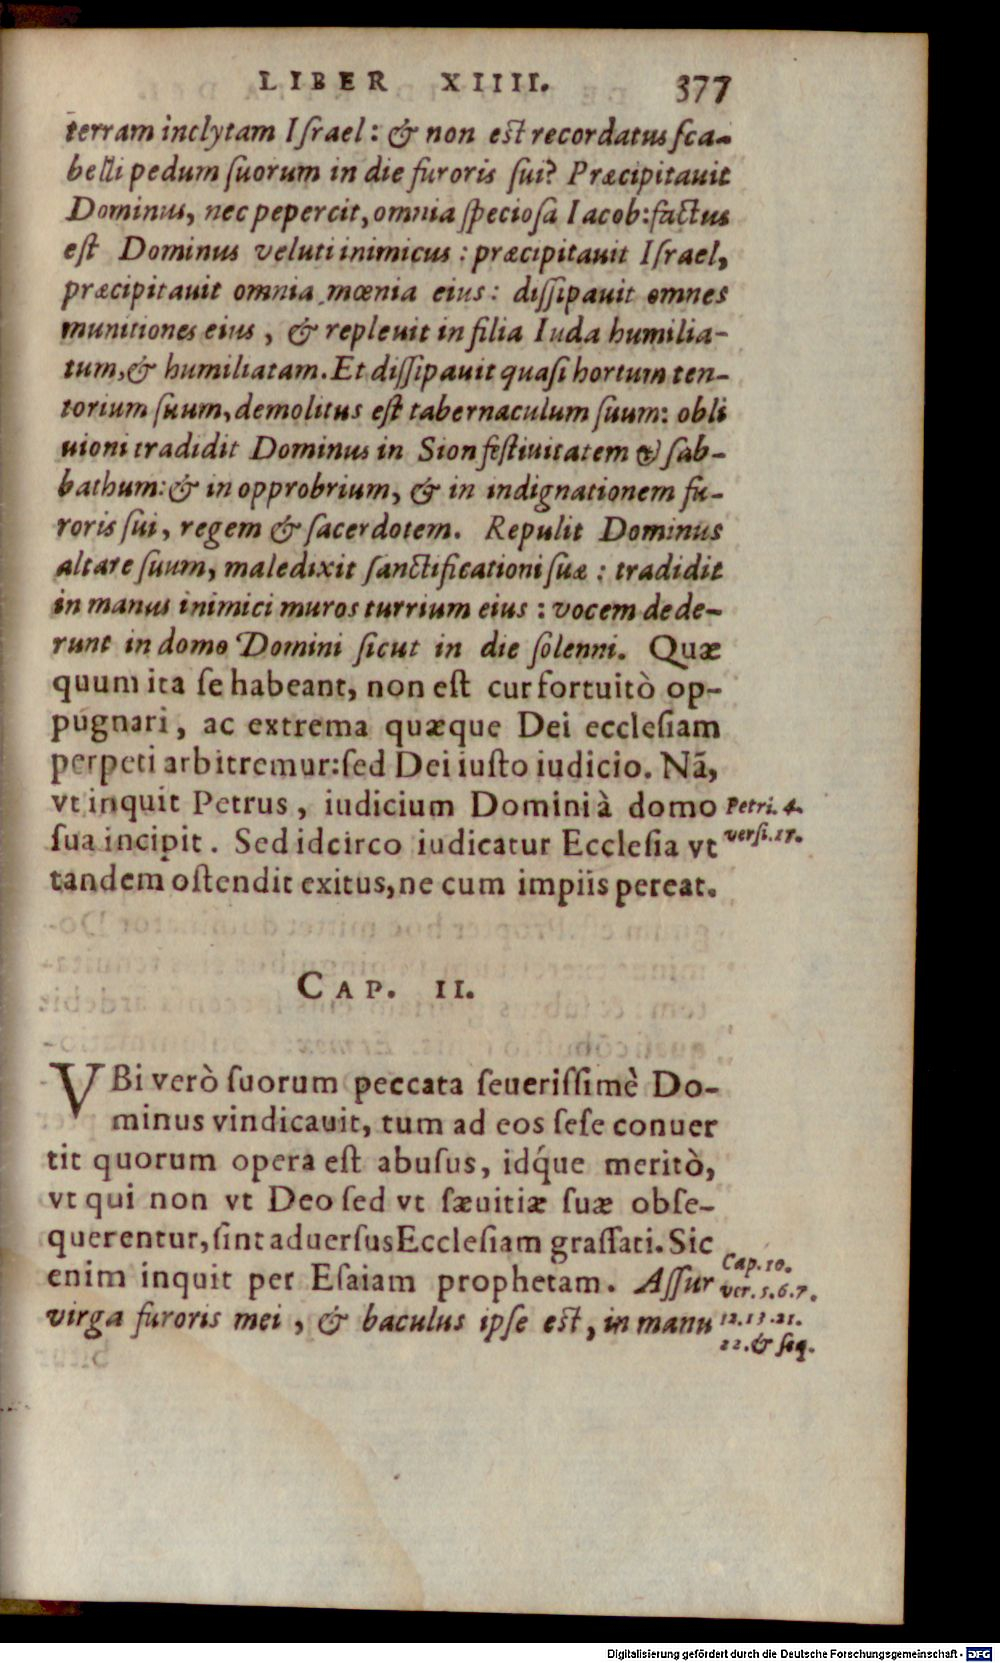 LIBER XIIII. 377
terram inclytam Iſrael: & non eſt recordatus ſca-
belli pedum ſuorum in die furoris ſui? Præcipitauit
Dominus, nec pepercit, omnia ſpecioſa Iacob: factus
eſt Dominus veluti inimicus: præcipitauit Iſrael,
præcipitauit omnia mœnia eius: diſſipauit omnes
munitiones eius, & repleuit in filia Iuda humilia-
tum, & humiliatam. Et diſſipauit quaſi hortum ten-
torium ſuum, demolitus eſt tabernaculum ſuum: obli
uioni tradidit Dominus in Sion feſtiuitatem & ſab-
bathum: & in opprobrium, & in indignationem fu-
roris ſui, regem & ſacerdotem. Repulit Dominus
altare ſuum, maledixit ſanctificationi ſuæ: tradidit
in manus inimici muros turrium eius: vocem dede-
runt in domo Domini ſicut in die ſolenni. Quæ
quum ita ſe habeant, non eſt cur fortuitò op-
pugnari, ac extrema quæque Dei eccleſiam
perpeti arbitremur: ſed Dei iuſto iudicio. Nã,
vt inquit Petrus, iudicium Domini à domo
Petri. 4.
ſua incipit. Sed idcirco iudicatur Eccleſia vt
verſi. 17.
tandem oſtendit exitus, ne cum impiis pereat.
CAP. II.
VBi verò ſuorum peccata ſeueriſſimè Do-
minus vindicauit, tum ad eos ſeſe conuer
tit quorum opera eſt abuſus, idq́ue meritò,
vt qui non vt Deo ſed vt ſæuitiæ ſuæ obſe-
querentur, ſint aduerſus Eccleſiam graſſati. Sic
Cap. 10.
enim inquit per Eſaiam prophetam. Aſſur
ver. 5. 6. 7.
virga furoris mei, & baculus ipſe eſt, in manu
12. 13. 21.
22. & ſeq.
Digitalisierung gefördert durch die Deutsche Forschungsgemeinschaft - DFG